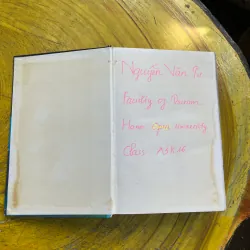 Nguyễn Văn
Faculty of Tourism
Hanoi Open University
Class